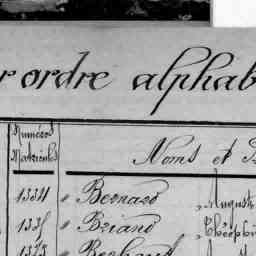 r ordre alphab
Numéros
Matricules
Noms et P
1334 " Bernard " Auguste
1335 " Briand " Théophi